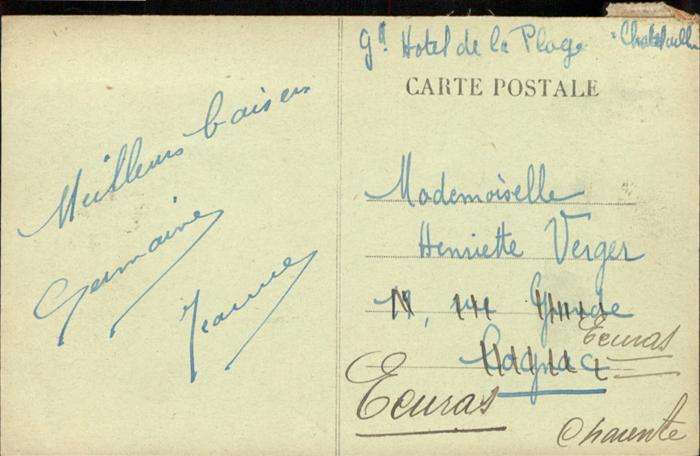 Gd Hotel de la Plage Chatelaillon
CARTE POSTALE
Meilleurs baisers
Germaine
Jeanne
Mademoiselle
Henriette Verger
18, rue Grande
Cognac
Ecuras
Ecuras
Charente